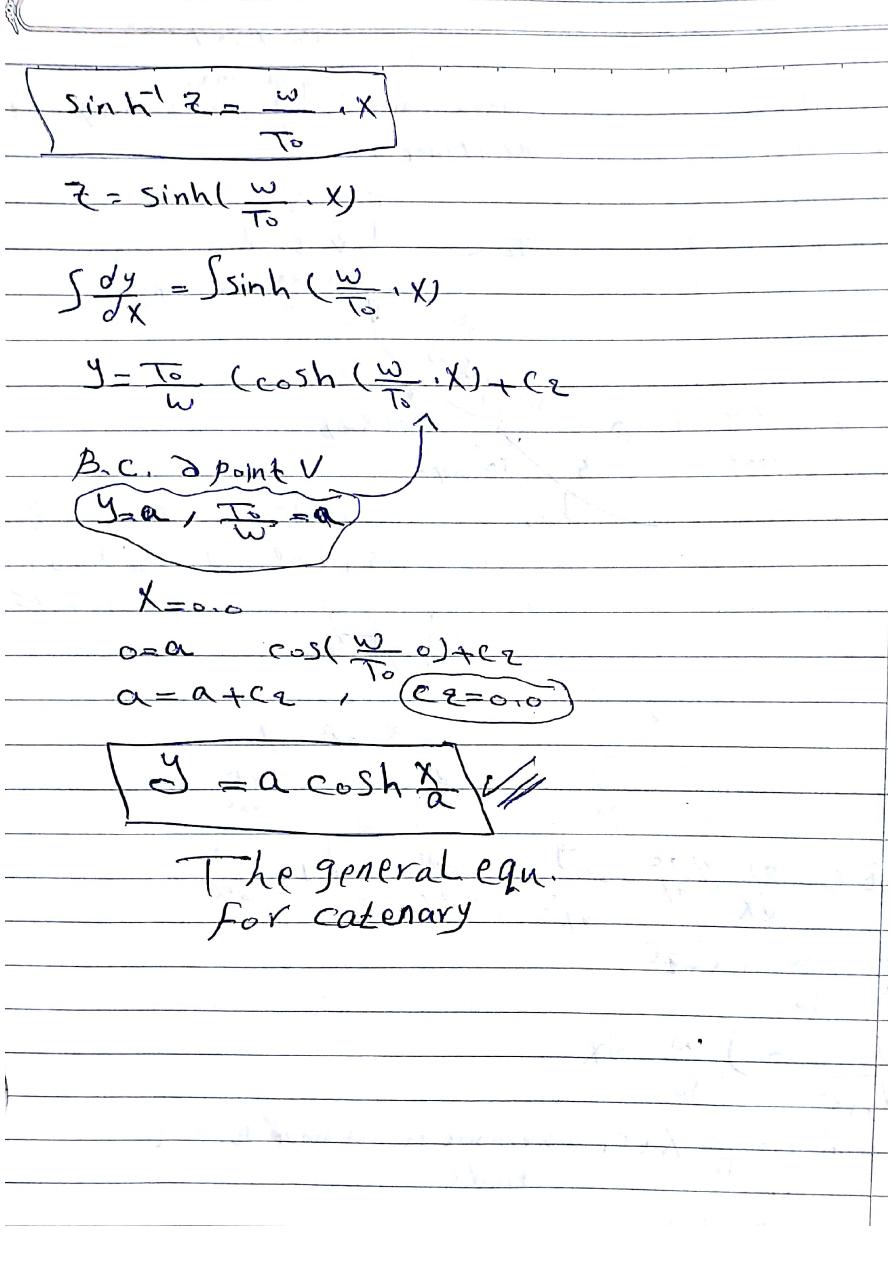 sinh⁻¹ z = w/To . X
z = sinh( w/To . X)
∫ dy/dx = ∫ sinh ( w/To . X)
y = To/w (cosh ( w/To . X) + C2
B.C. @ point V
y=a , To/w = a
X=0.0
0=a cos( w/To 0)+C2
a = a + C2 , C2=0.0
y = a cosh x/a
The general equ.
for catenary